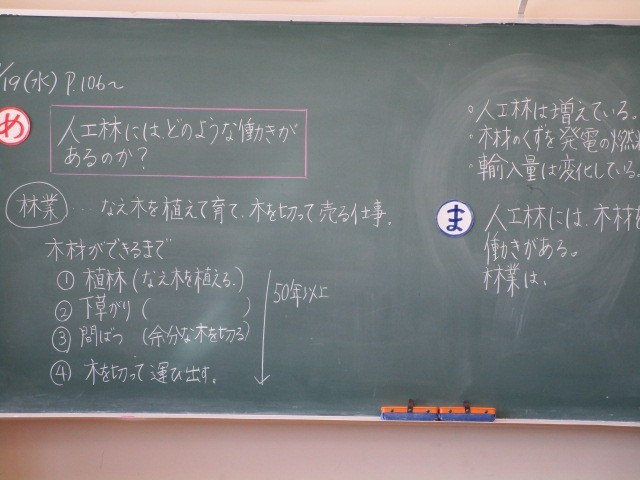 /19(水) P.106〜
め
人工林にはどのような働きが
あるのか?
林業 … なえ木を植えて育て、木を切って売る仕事。
木材ができるまで
① 植林(なえ木を植える。)
② 下草がり( )
③ 間ばつ (余分な木を切る)
④ 木を切って運び出す。
50年以上
・人工林は増えている。
・木材のくずを発電の燃料
・輸入量は変化している。
ま
人工林には、木材を
働きがある。
林業は、